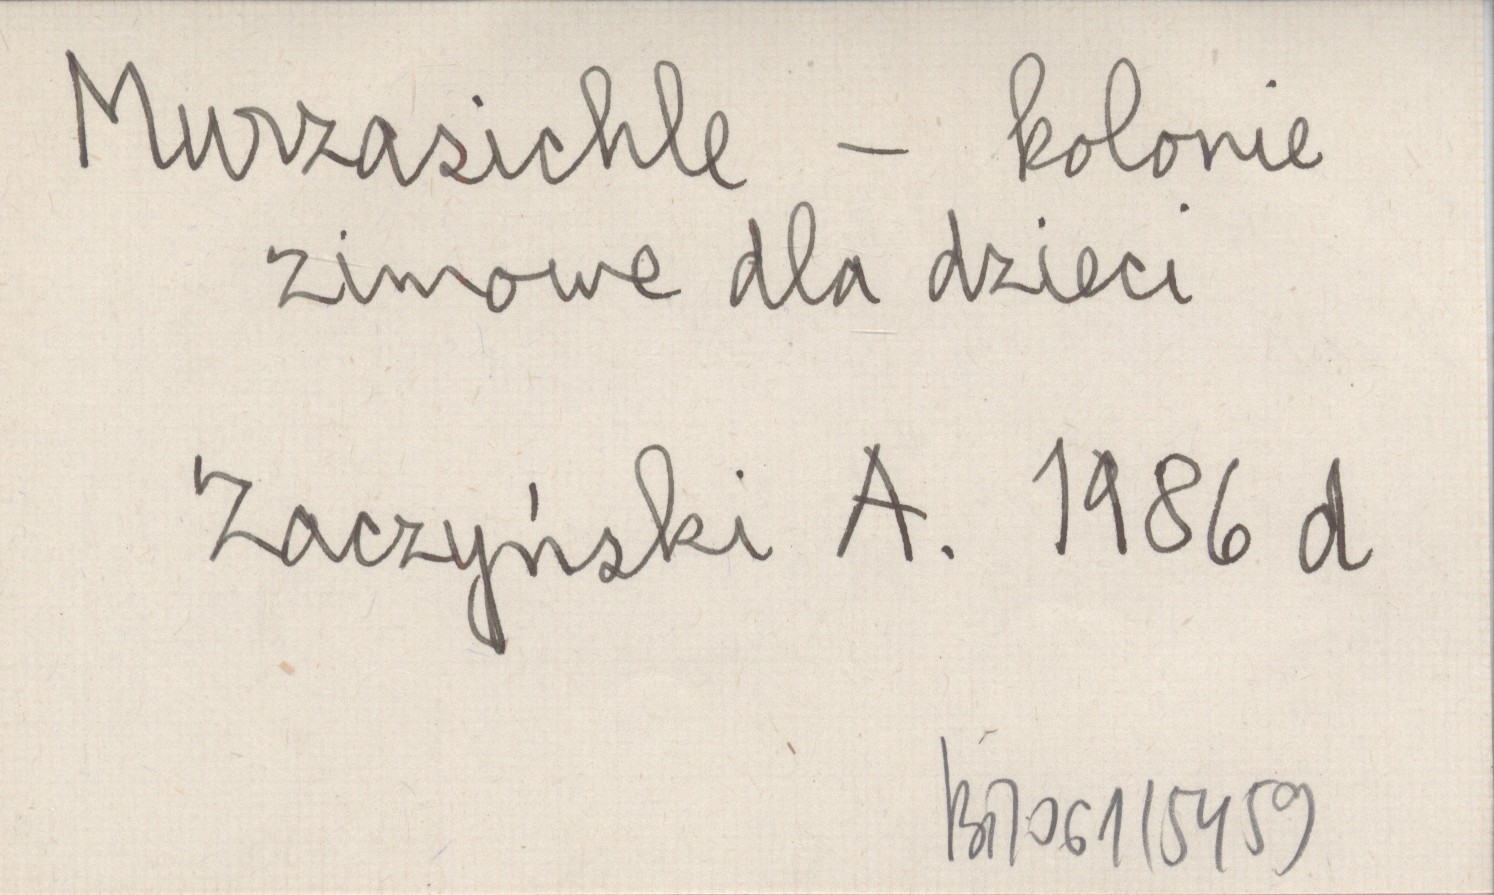 Murzasichle - kolonie
zimowe dla dzieci
Zaczyński A. 1986 d